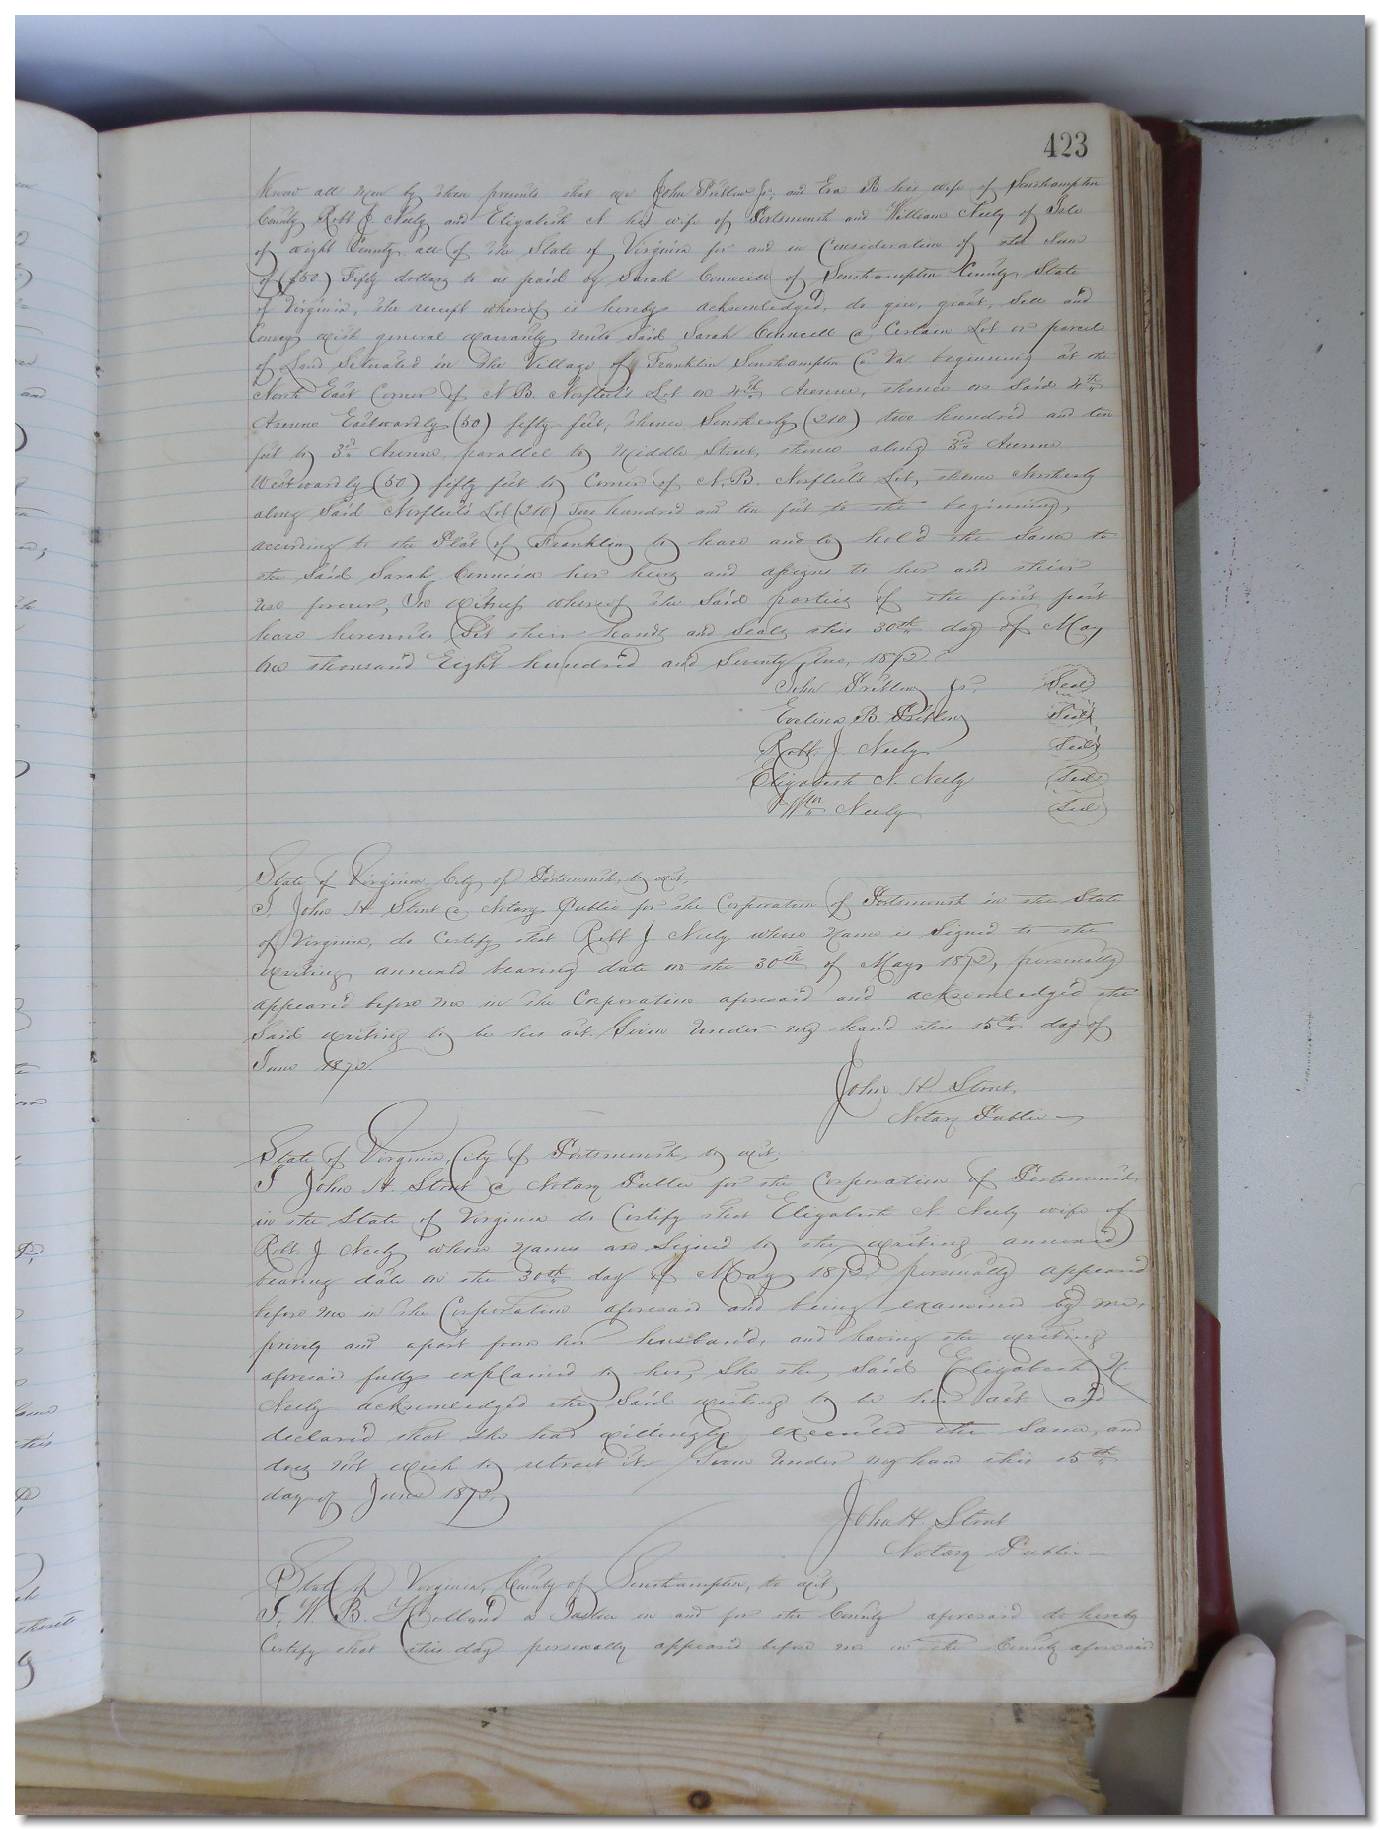 423
Know all men by these presents that we John Pretlow Jr. and Eva B his wife of Southampton
County Robt J Neely and Elizabeth N his wife of Portsmouth and William Neely of Isle
of wight County all of the State of Virginia for and in consideration of the Sum
of ($50) Fifty dollars to us paid by Sarah of Southampton County State
of Virginia, the receipt whereof is hereby acknowledged, do give, grant, Sell and
Convey with general warranty unto said Sarah a Certain Lot or parcel
of Land Situated in the Village of Franklin Southampton Co Va beginning at the
North East Corner of N. B. Norfleet's Lot on 4th Avenue, thence on Said 4th
Avenue Eastwardly (50) fifty feet, thence Southerly (210) two hundred and ten
feet to 3d Avenue, parallel to Middle Street, thence along 3d Avenue
Westwardly (50) fifty feet to Corner of N. B. Norfleet's Lot, thence Northerly
along Said Norfleet's Lot (210) Two hundred and ten feet to the beginning,
according to the Plat of Franklin, to have and to hold the Same to
the Said Sarah her heirs and assigns to her and their
use forever, In witness whereof the Said parties of the first part
have hereunto Set their hands and Seals this 30th day of May
One thousand Eight hundred and Seventy two, 1872.
John Pretlow Jr. Seal
Evelina B Pretlow Seal
Robt. J Neely Seal
Elizabeth N. Neely Seal
Wm Neely Seal
State of Virginia City of Portsmouth, to wit,
I, John H Strout a Notary Public for the Corporation of Portsmouth in the State
of Virginia, do Certify that Robt J Neely whose Name is Signed to the
writing annexed bearing date on the 30th of May 1872, personally
appeared before me in the Corporation aforesaid and acknowledged the
Said writing to be his act. Given under my hand this 15th day of
June 1872.
John H Strout,
Notary Public
State of Virginia, City of Portsmouth, to wit,
I John H. Strout a Notary Public for the Corporation of Portsmouth,
in the State of Virginia do Certify that Elizabeth N Neely wife of
Robt. J Neely whose names are Signed to the writing annexed
bearing date on the 30th day of May 1872 personally appeared
before me in the Corporation aforesaid and being examined by me,
privily and apart from her husband, and having the writing
aforesaid fully explained to her, She the Said Elizabeth N.
Neely acknowledged the Said writing to be her act and
declared that She had willingly executed the Same, and
does not wish to retract it. Given under my hand this 15th
day of June 1872.
John H Strout
Notary Public
State of Virginia, County of Southampton, to wit,
I, W. B. Holland a Justice in and for the County aforesaid do hereby
Certify that this day personally appeared before me in the County aforesaid